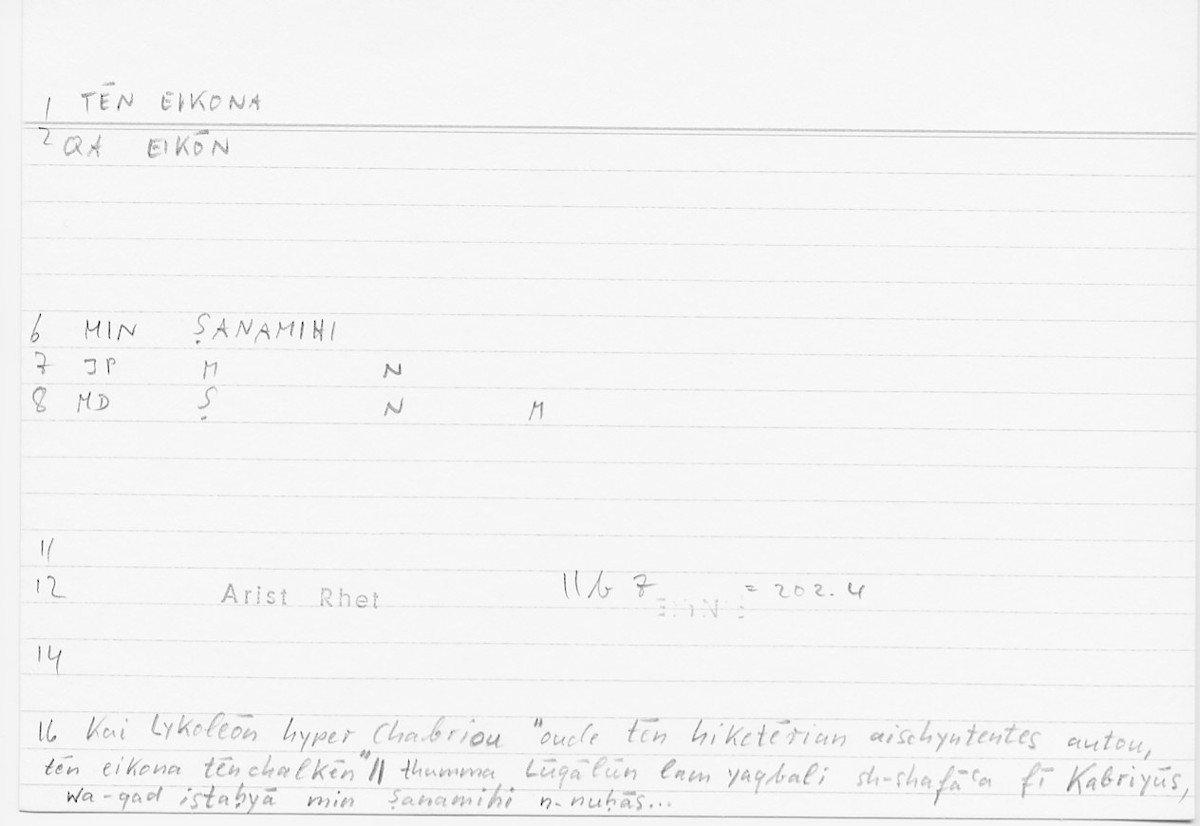 1 TĒN EIKONA
2 QA EIKŌN
6 MIN ṢANAMIHI
7 JP M N
8 MD Ṣ N M
11
12 Arist Rhet 11b 7 = 202.4
14
16 Kai Lykoleōn hyper Chabriou "oude tēn hiketērian aischyntentes autou,
tēn eikona tēn chalkēn" || thumma Lūqālūn lam yaqbali sh-shafāʿa fī Kabriyūs,
wa-qad istaḥyā min ṣanamihi n-nuḥās...